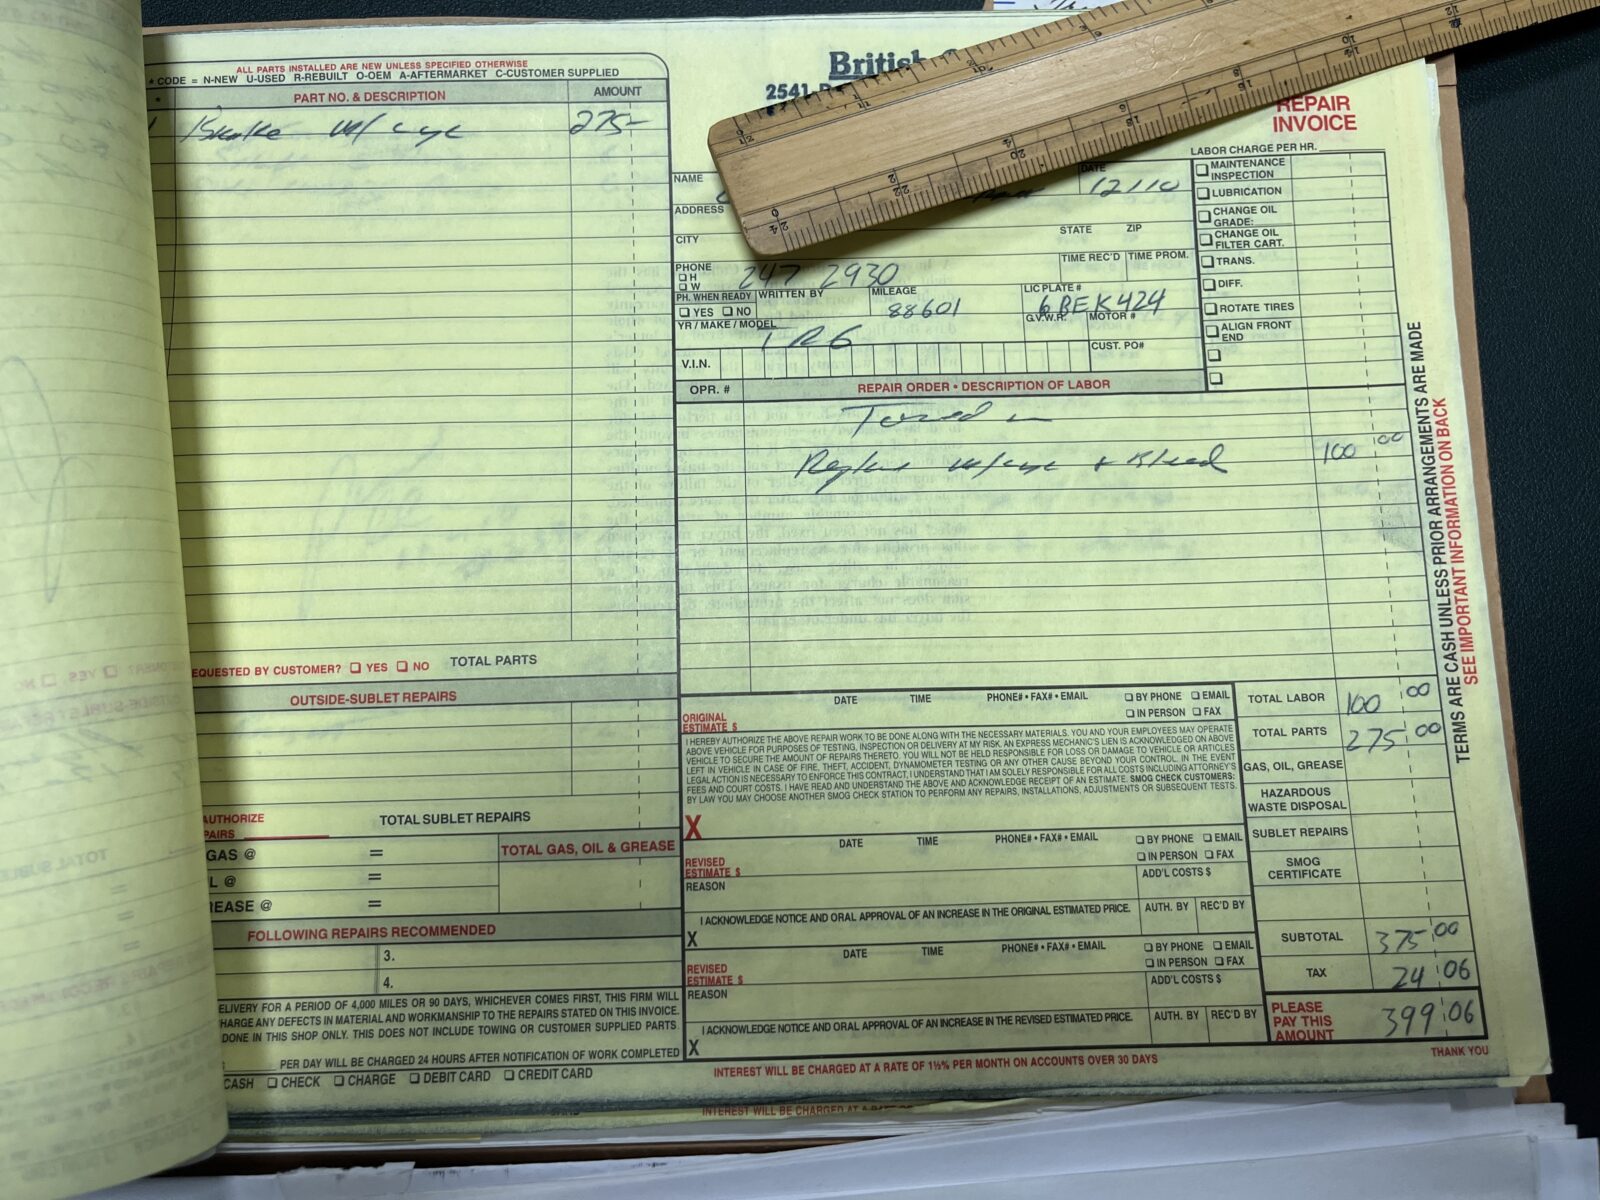 ALL PARTS INSTALLED ARE NEW UNLESS SPECIFIED OTHERWISE
* CODE = N-NEW U-USED R-REBUILT O-OEM A-AFTERMARKET C-CUSTOMER SUPPLIED
* PART NO. & DESCRIPTION AMOUNT
1 Brake m/cyc 275-
EQUESTED BY CUSTOMER? YES NO TOTAL PARTS
OUTSIDE-SUBLET REPAIRS
AUTHORIZE
PAIRS
TOTAL SUBLET REPAIRS
GAS @ =
L @ =
REASE @ =
TOTAL GAS, OIL & GREASE
FOLLOWING REPAIRS RECOMMENDED
3.
4.
ELIVERY FOR A PERIOD OF 4,000 MILES OR 90 DAYS, WHICHEVER COMES FIRST, THIS FIRM WILL
HARGE ANY DEFECTS IN MATERIAL AND WORKMANSHIP TO THE REPAIRS STATED ON THIS INVOICE.
DONE IN THIS SHOP ONLY. THIS DOES NOT INCLUDE TOWING OR CUSTOMER SUPPLIED PARTS.
PER DAY WILL BE CHARGED 24 HOURS AFTER NOTIFICATION OF WORK COMPLETED
CASH CHECK CHARGE DEBIT CARD CREDIT CARD
British
2541
REPAIR
INVOICE
LABOR CHARGE PER HR.
NAME
DATE 12110
ADDRESS
CITY STATE ZIP
PHONE
H
W
247 2930
TIME REC'D TIME PROM.
PH. WHEN READY
YES NO
WRITTEN BY
MILEAGE 88601
LIC PLATE # 6BEK424
YR / MAKE / MODEL TR6
G.V.W.R. MOTOR #
V.I.N.
CUST. PO#
MAINTENANCE
INSPECTION
LUBRICATION
CHANGE OIL
GRADE:
CHANGE OIL
FILTER CART.
TRANS.
DIFF.
ROTATE TIRES
ALIGN FRONT
END
OPR. # REPAIR ORDER • DESCRIPTION OF LABOR
Towed in
Replace m/cyc + Bleed 100 00
DATE TIME PHONE# • FAX# • EMAIL BY PHONE EMAIL
IN PERSON FAX
ORIGINAL
ESTIMATE $
I HEREBY AUTHORIZE THE ABOVE REPAIR WORK TO BE DONE ALONG WITH THE NECESSARY MATERIALS. YOU AND YOUR EMPLOYEES MAY OPERATE
ABOVE VEHICLE FOR PURPOSES OF TESTING, INSPECTION OR DELIVERY AT MY RISK. AN EXPRESS MECHANIC'S LIEN IS ACKNOWLEDGED ON ABOVE
VEHICLE TO SECURE THE AMOUNT OF REPAIRS THERETO. YOU WILL NOT BE HELD RESPONSIBLE FOR LOSS OR DAMAGE TO VEHICLE OR ARTICLES
LEFT IN VEHICLE IN CASE OF FIRE, THEFT, ACCIDENT, DYNAMOMETER TESTING OR ANY OTHER CAUSE BEYOND YOUR CONTROL. IN THE EVENT
LEGAL ACTION IS NECESSARY TO ENFORCE THIS CONTRACT, I UNDERSTAND THAT I AM SOLELY RESPONSIBLE FOR ALL COSTS INCLUDING ATTORNEY'S
FEES AND COURT COSTS. I HAVE READ AND UNDERSTAND THE ABOVE AND ACKNOWLEDGE RECEIPT OF AN ESTIMATE. SMOG CHECK CUSTOMERS:
BY LAW YOU MAY CHOOSE ANOTHER SMOG CHECK STATION TO PERFORM ANY REPAIRS, INSTALLATIONS, ADJUSTMENTS OR SUBSEQUENT TESTS.
X
DATE TIME PHONE# • FAX# • EMAIL BY PHONE EMAIL
IN PERSON FAX
REVISED
ESTIMATE $
ADD'L COSTS $
REASON
I ACKNOWLEDGE NOTICE AND ORAL APPROVAL OF AN INCREASE IN THE ORIGINAL ESTIMATED PRICE. AUTH. BY REC'D BY
X
DATE TIME PHONE# • FAX# • EMAIL BY PHONE EMAIL
IN PERSON FAX
REVISED
ESTIMATE $
ADD'L COSTS $
REASON
I ACKNOWLEDGE NOTICE AND ORAL APPROVAL OF AN INCREASE IN THE REVISED ESTIMATED PRICE. AUTH. BY REC'D BY
X
TOTAL LABOR 100 00
TOTAL PARTS 275 00
GAS, OIL, GREASE
HAZARDOUS
WASTE DISPOSAL
SUBLET REPAIRS
SMOG
CERTIFICATE
SUBTOTAL 375 00
TAX 24 06
PLEASE
PAY THIS
AMOUNT
399 06
INTEREST WILL BE CHARGED AT A RATE OF 1½% PER MONTH ON ACCOUNTS OVER 30 DAYS
THANK YOU
TERMS ARE CASH UNLESS PRIOR ARRANGEMENTS ARE MADE
SEE IMPORTANT INFORMATION ON BACK
INTEREST WILL BE CHARGED AT A